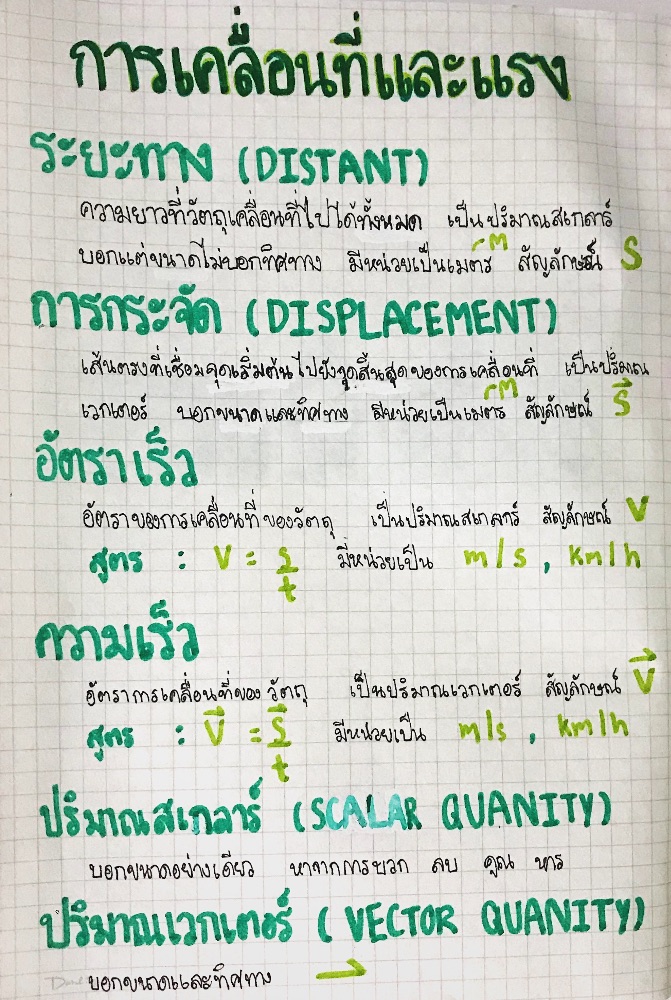 การเคลื่อนที่และแรง
ระยะทาง (DISTANT)
ความยาวที่วัตถุเคลื่อนที่ไปได้ทั้งหมด เป็นปริมาณสเกลาร์
บอกแต่ขนาดไม่บอกทิศทาง มีหน่วยเป็นเมตร m สัญลักษณ์ S
การกระจัด (DISPLACEMENT)
เส้นตรงที่เชื่อมจุดเริ่มต้นไปยังจุดสิ้นสุดของการเคลื่อนที่ เป็นปริมาณ
เวกเตอร์ บอกขนาดและทิศทาง มีหน่วยเป็นเมตร m สัญลักษณ์ S⃗
อัตราเร็ว
อัตราของการเคลื่อนที่ของวัตถุ เป็นปริมาณสเกลาร์ สัญลักษณ์ V
สูตร : V = s/t มีหน่วยเป็น m/s , km/h
ความเร็ว
อัตราการเคลื่อนที่ของวัตถุ เป็นปริมาณเวกเตอร์ สัญลักษณ์ V⃗
สูตร : V⃗ = S⃗/t มีหน่วยเป็น m/s , km/h
ปริมาณสเกลาร์ (SCALAR QUANITY)
บอกขนาดอย่างเดียว หาจากการบวก ลบ คูณ หาร
ปริมาณเวกเตอร์ (VECTOR QUANITY)
บอกขนาดและทิศทาง →